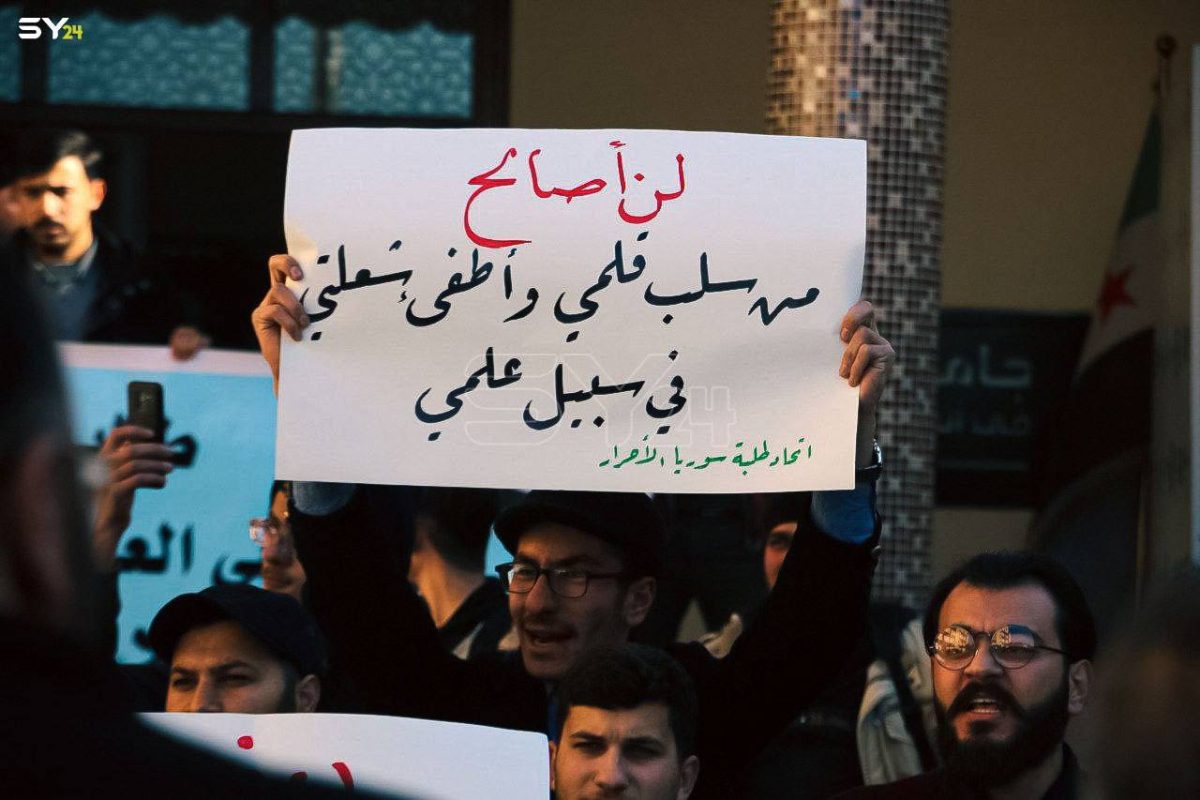 SY24
لن أصالح
من سلب قلمي وأطفى شعلتي
في سبيل علمي
اتحاد طلبة سوريا الأحرار
SY24